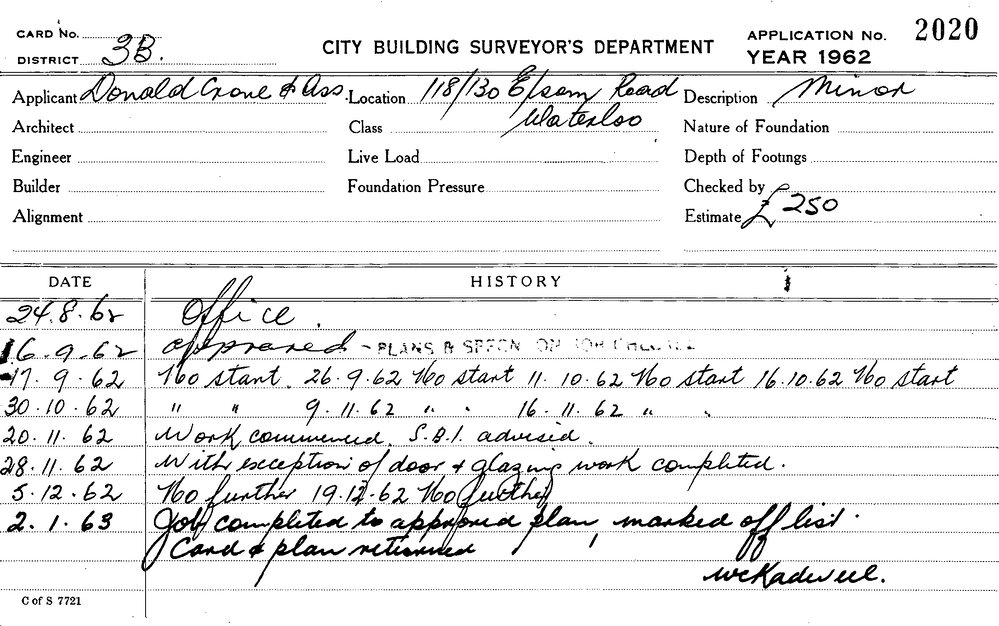 CARD No.
DISTRICT 3B.
CITY BUILDING SURVEYOR'S DEPARTMENT
APPLICATION No. 2020
YEAR 1962
Applicant Donald Crone & Ass. Location 118/130 Epsom Road Description Minor
Architect Class Waterloo Nature of Foundation
Engineer Live Load Depth of Footings
Builder Foundation Pressure Checked by
Alignment Estimate £250
DATE HISTORY
24.8.62 Office.
6.9.62 approved - PLANS & SPECN ON JOB CHECKED
17.9.62 No start. 26.9.62 No start 11.10.62 No start 16.10.62 No start
30.10.62 " " 9.11.62 " " 16.11.62 " "
20.11.62 Work commenced. S.B.I. advised.
28.11.62 With exception of door & glazing work completed.
5.12.62 No further 19.12.62 No further
2.1.63 Job completed to approved plan, marked off list.
Card & plan returned
C of S 7721